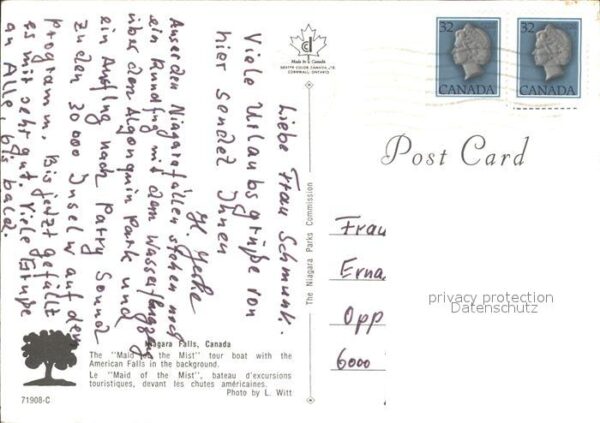 Liebe Frau Schmunk.
Viele Urlaubsgrüße von
hier sendet Ihnen
H.
Außer den Niagarafällen stehen noch
ein Rundflug mit dem Wasserflugzeug
über dem Algonquin Park und
ein Ausflug nach Parry Sound
zu den 30 000 Inseln auf dem
Programm. Bis jetzt gefällt
es mir sehr gut. Viele Grüße
an Alle, bis bald.
Made in Canada
CORNWALL, ONTARIO
The Niagara Parks Commission
32 CANADA
32 CANADA
Post Card
Frau
Erna
Opp
6000
privacy protection
Datenschutz
Niagara Falls, Canada
The "Maid of the Mist" tour boat with the
American Falls in the background.
Le "Maid of the Mist", bateau d'excursions
touristiques, devant les chutes américaines.
Photo by L. Witt
71908-C